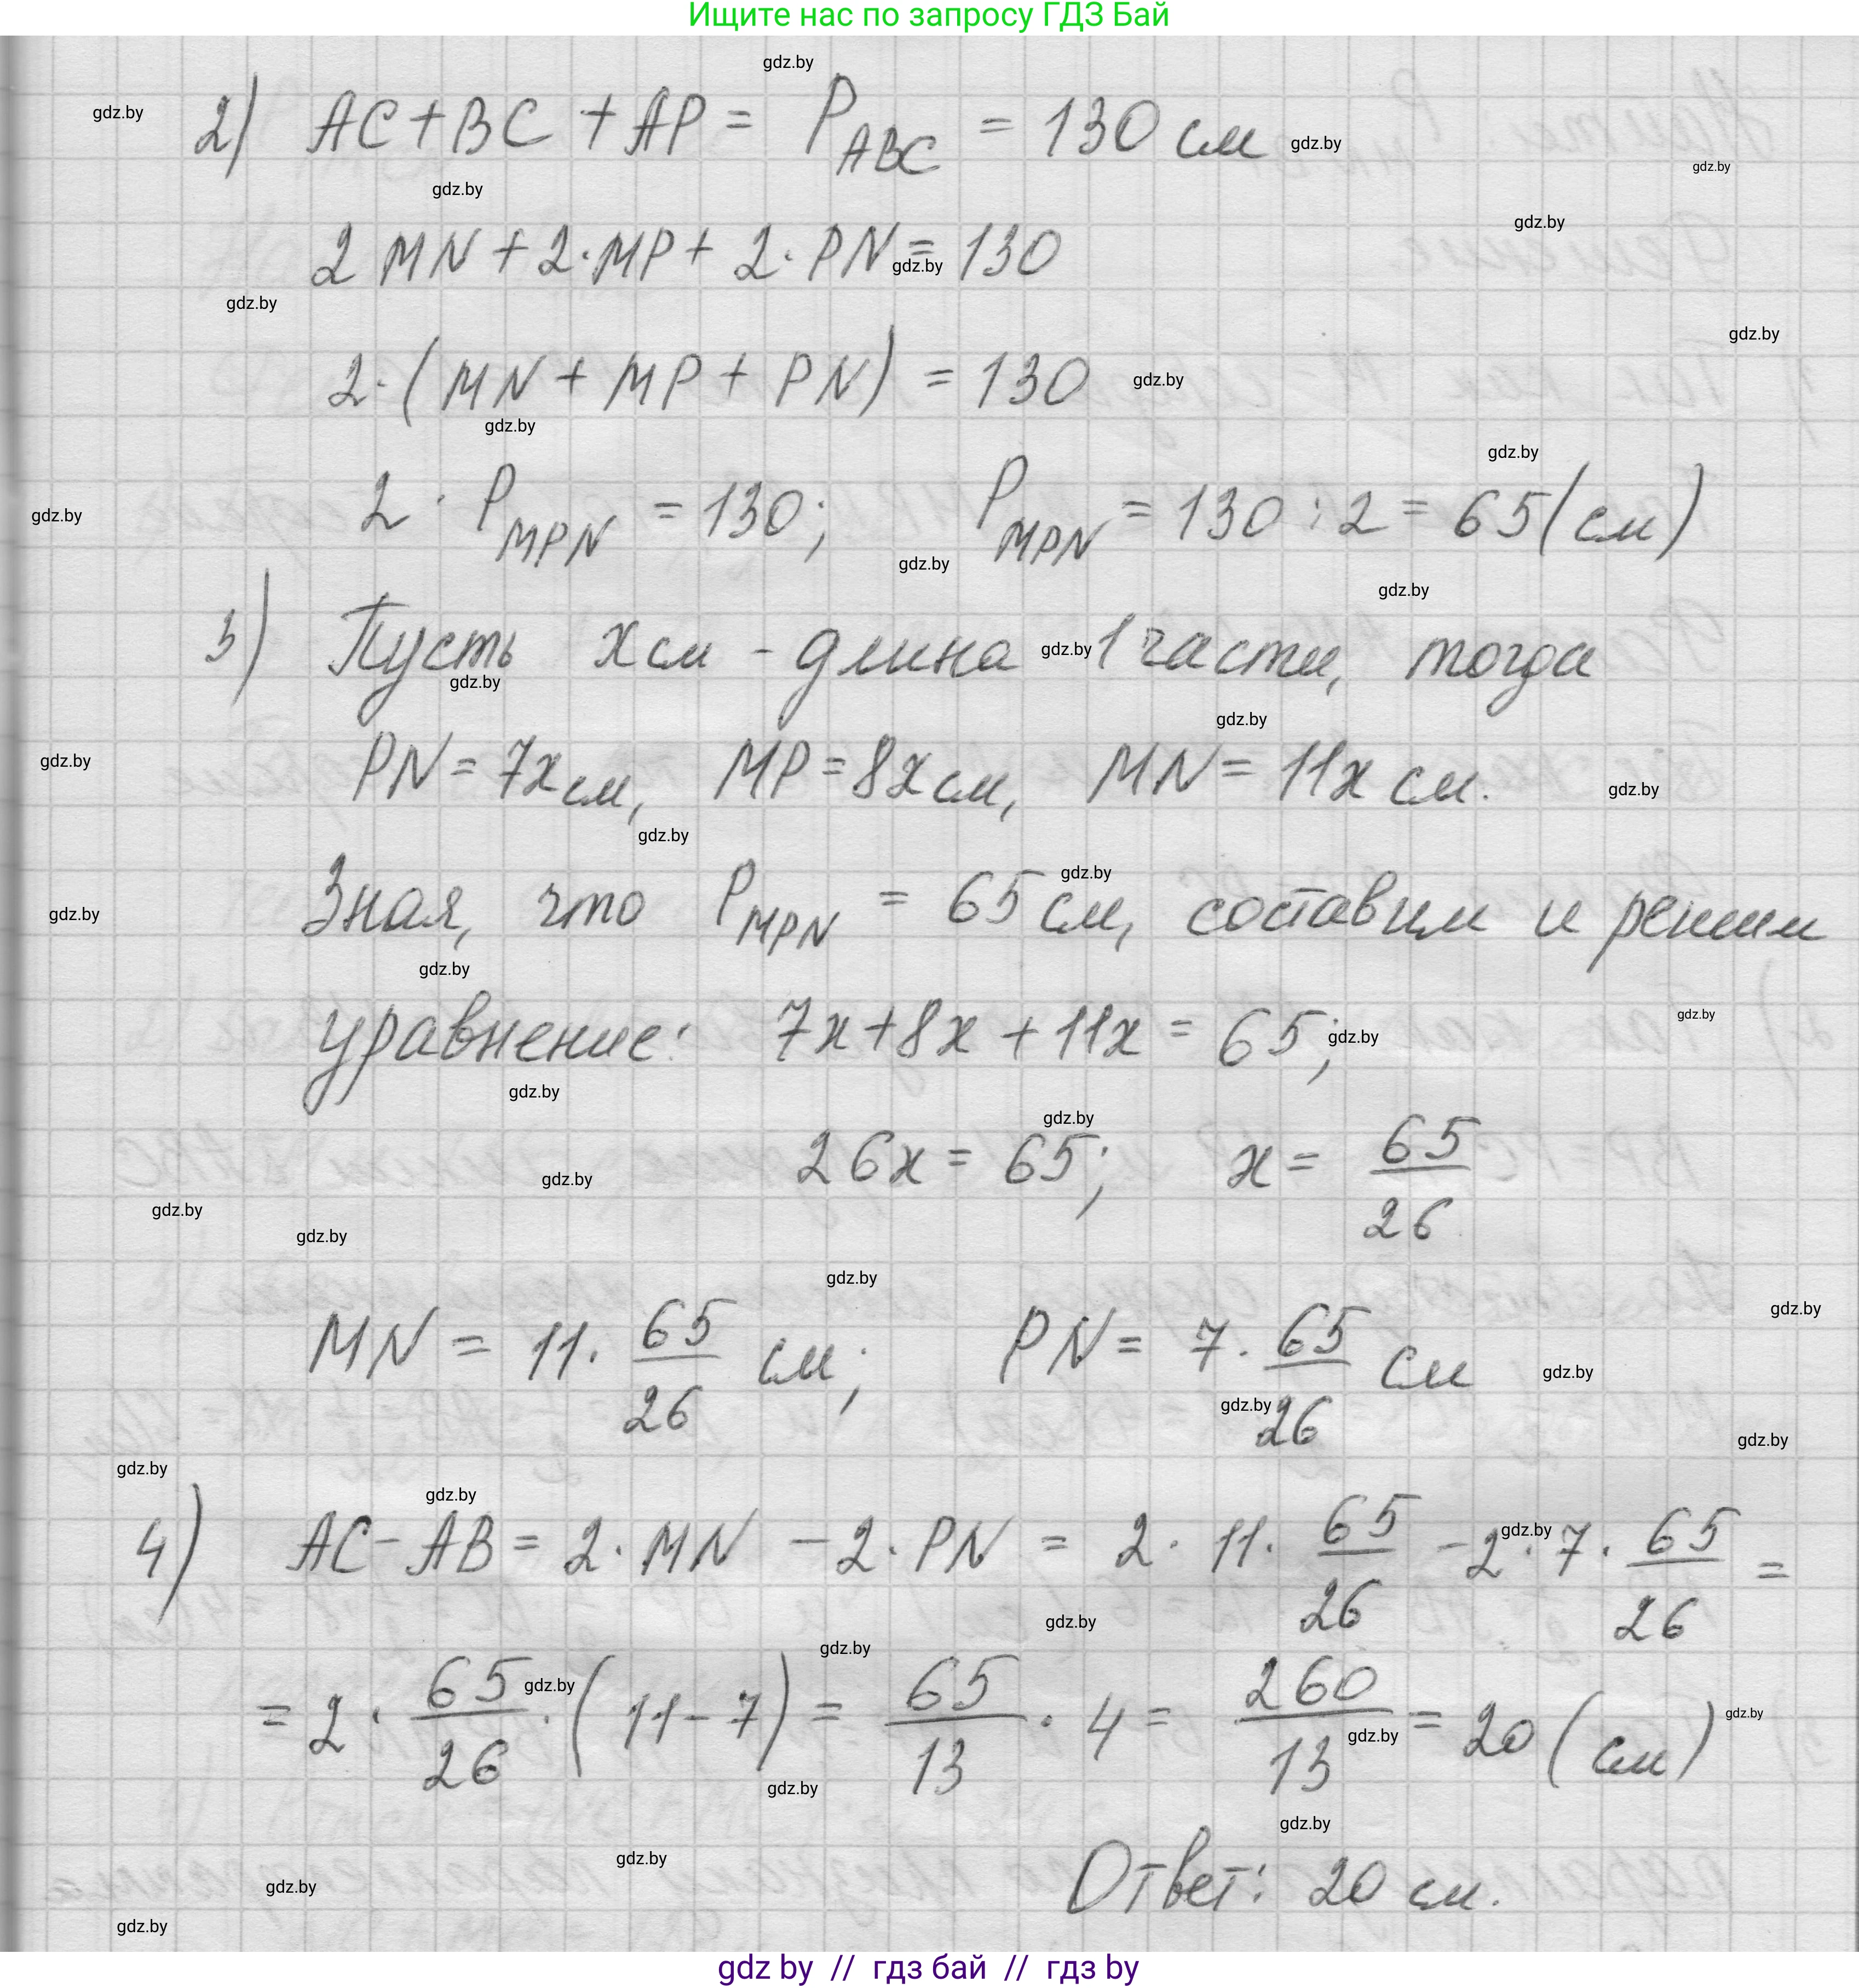 Ищите нас по запросу ГДЗ Бай
2) AC + BC + AP = P_ABC = 130 см
2 MN + 2·MP + 2·PN = 130
2·(MN + MP + PN) = 130
2 · P_MPN = 130; P_MPN = 130 : 2 = 65 (см)
3) Пусть x см - длина 1 части, тогда
PN = 7x см, MP = 8x см, MN = 11x см.
Зная, что P_MPN = 65 см, составим и решим
уравнение: 7x + 8x + 11x = 65;
26x = 65; x = 65/26
MN = 11 · 65/26 см; PN = 7 · 65/26 см
4) AC - AB = 2 · MN - 2 · PN = 2 · 11 · 65/26 - 2 · 7 · 65/26 =
= 2 · 65/26 · (11 - 7) = 65/13 · 4 = 260/13 = 20 (см)
Ответ: 20 см.
gdz by // гдз бай // гдз by